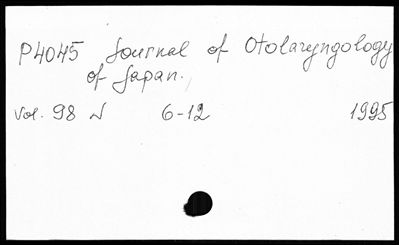 P4045 Journal of Otolaryngology
of Japan.
Vol. 98 N 6-12 1995